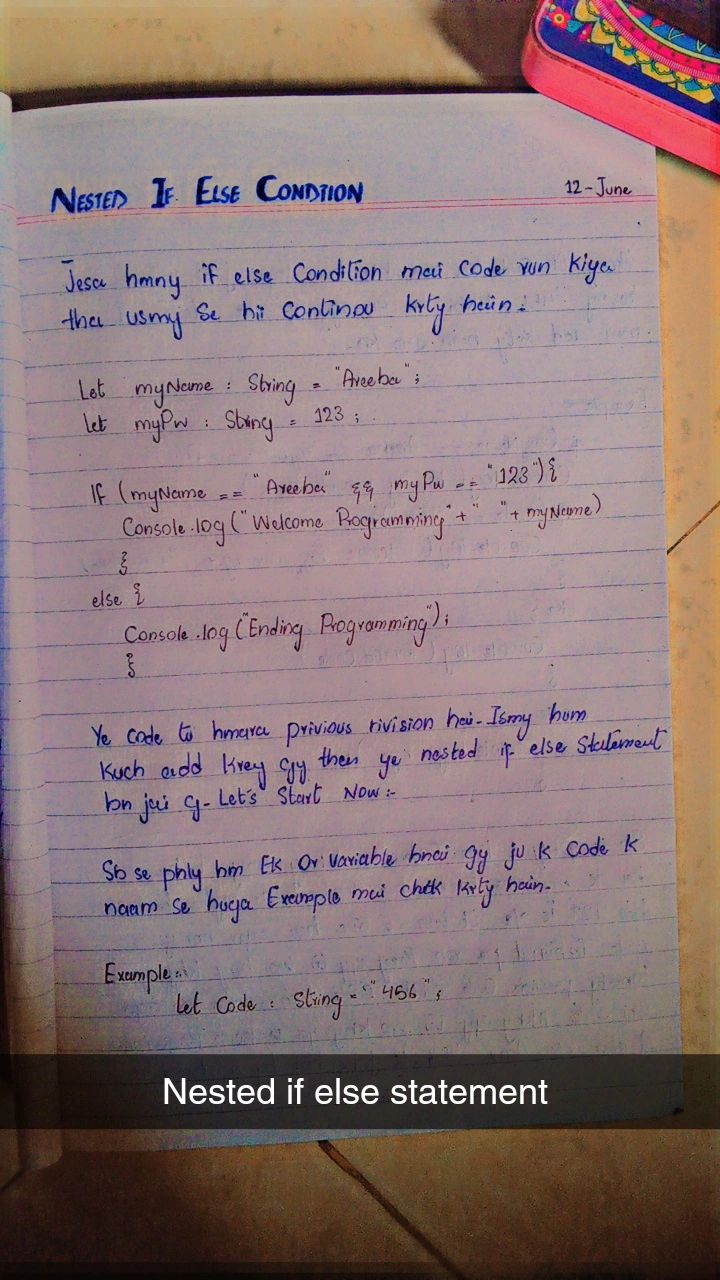 NESTED IF ELSE CONDTION
12-June
Jesa hmny if else Condition mai Code run Kiya
tha usmy Se hii Continou krty hain.
Let myName : String = "Areeba";
let myPw : String = 123 ;
IF (myName == "Areeba" && myPw == "123"){
Console.log("Welcome Programming"+" "+myName)
}
else {
Console.log("Ending Programming");
}
Ye code to hmara privious rivision hai. Ismy hum
Kuch add krey gy then ye nested if else Statement
bn jai g. Let's Start Now:-
Sb se phly hm Ek Or variable bnai gy ju k Code k
naam se huga Example mai chek krty hain.
Example:
let Code : String = "456";
Nested if else statement